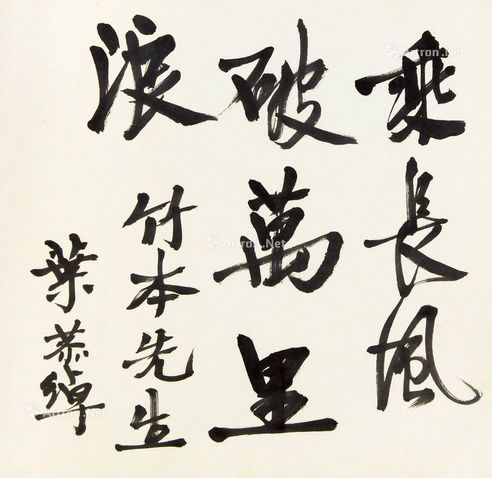 乘長風
破萬里
浪
竹本先生
葉恭綽
Artron.Net
Artron.Net